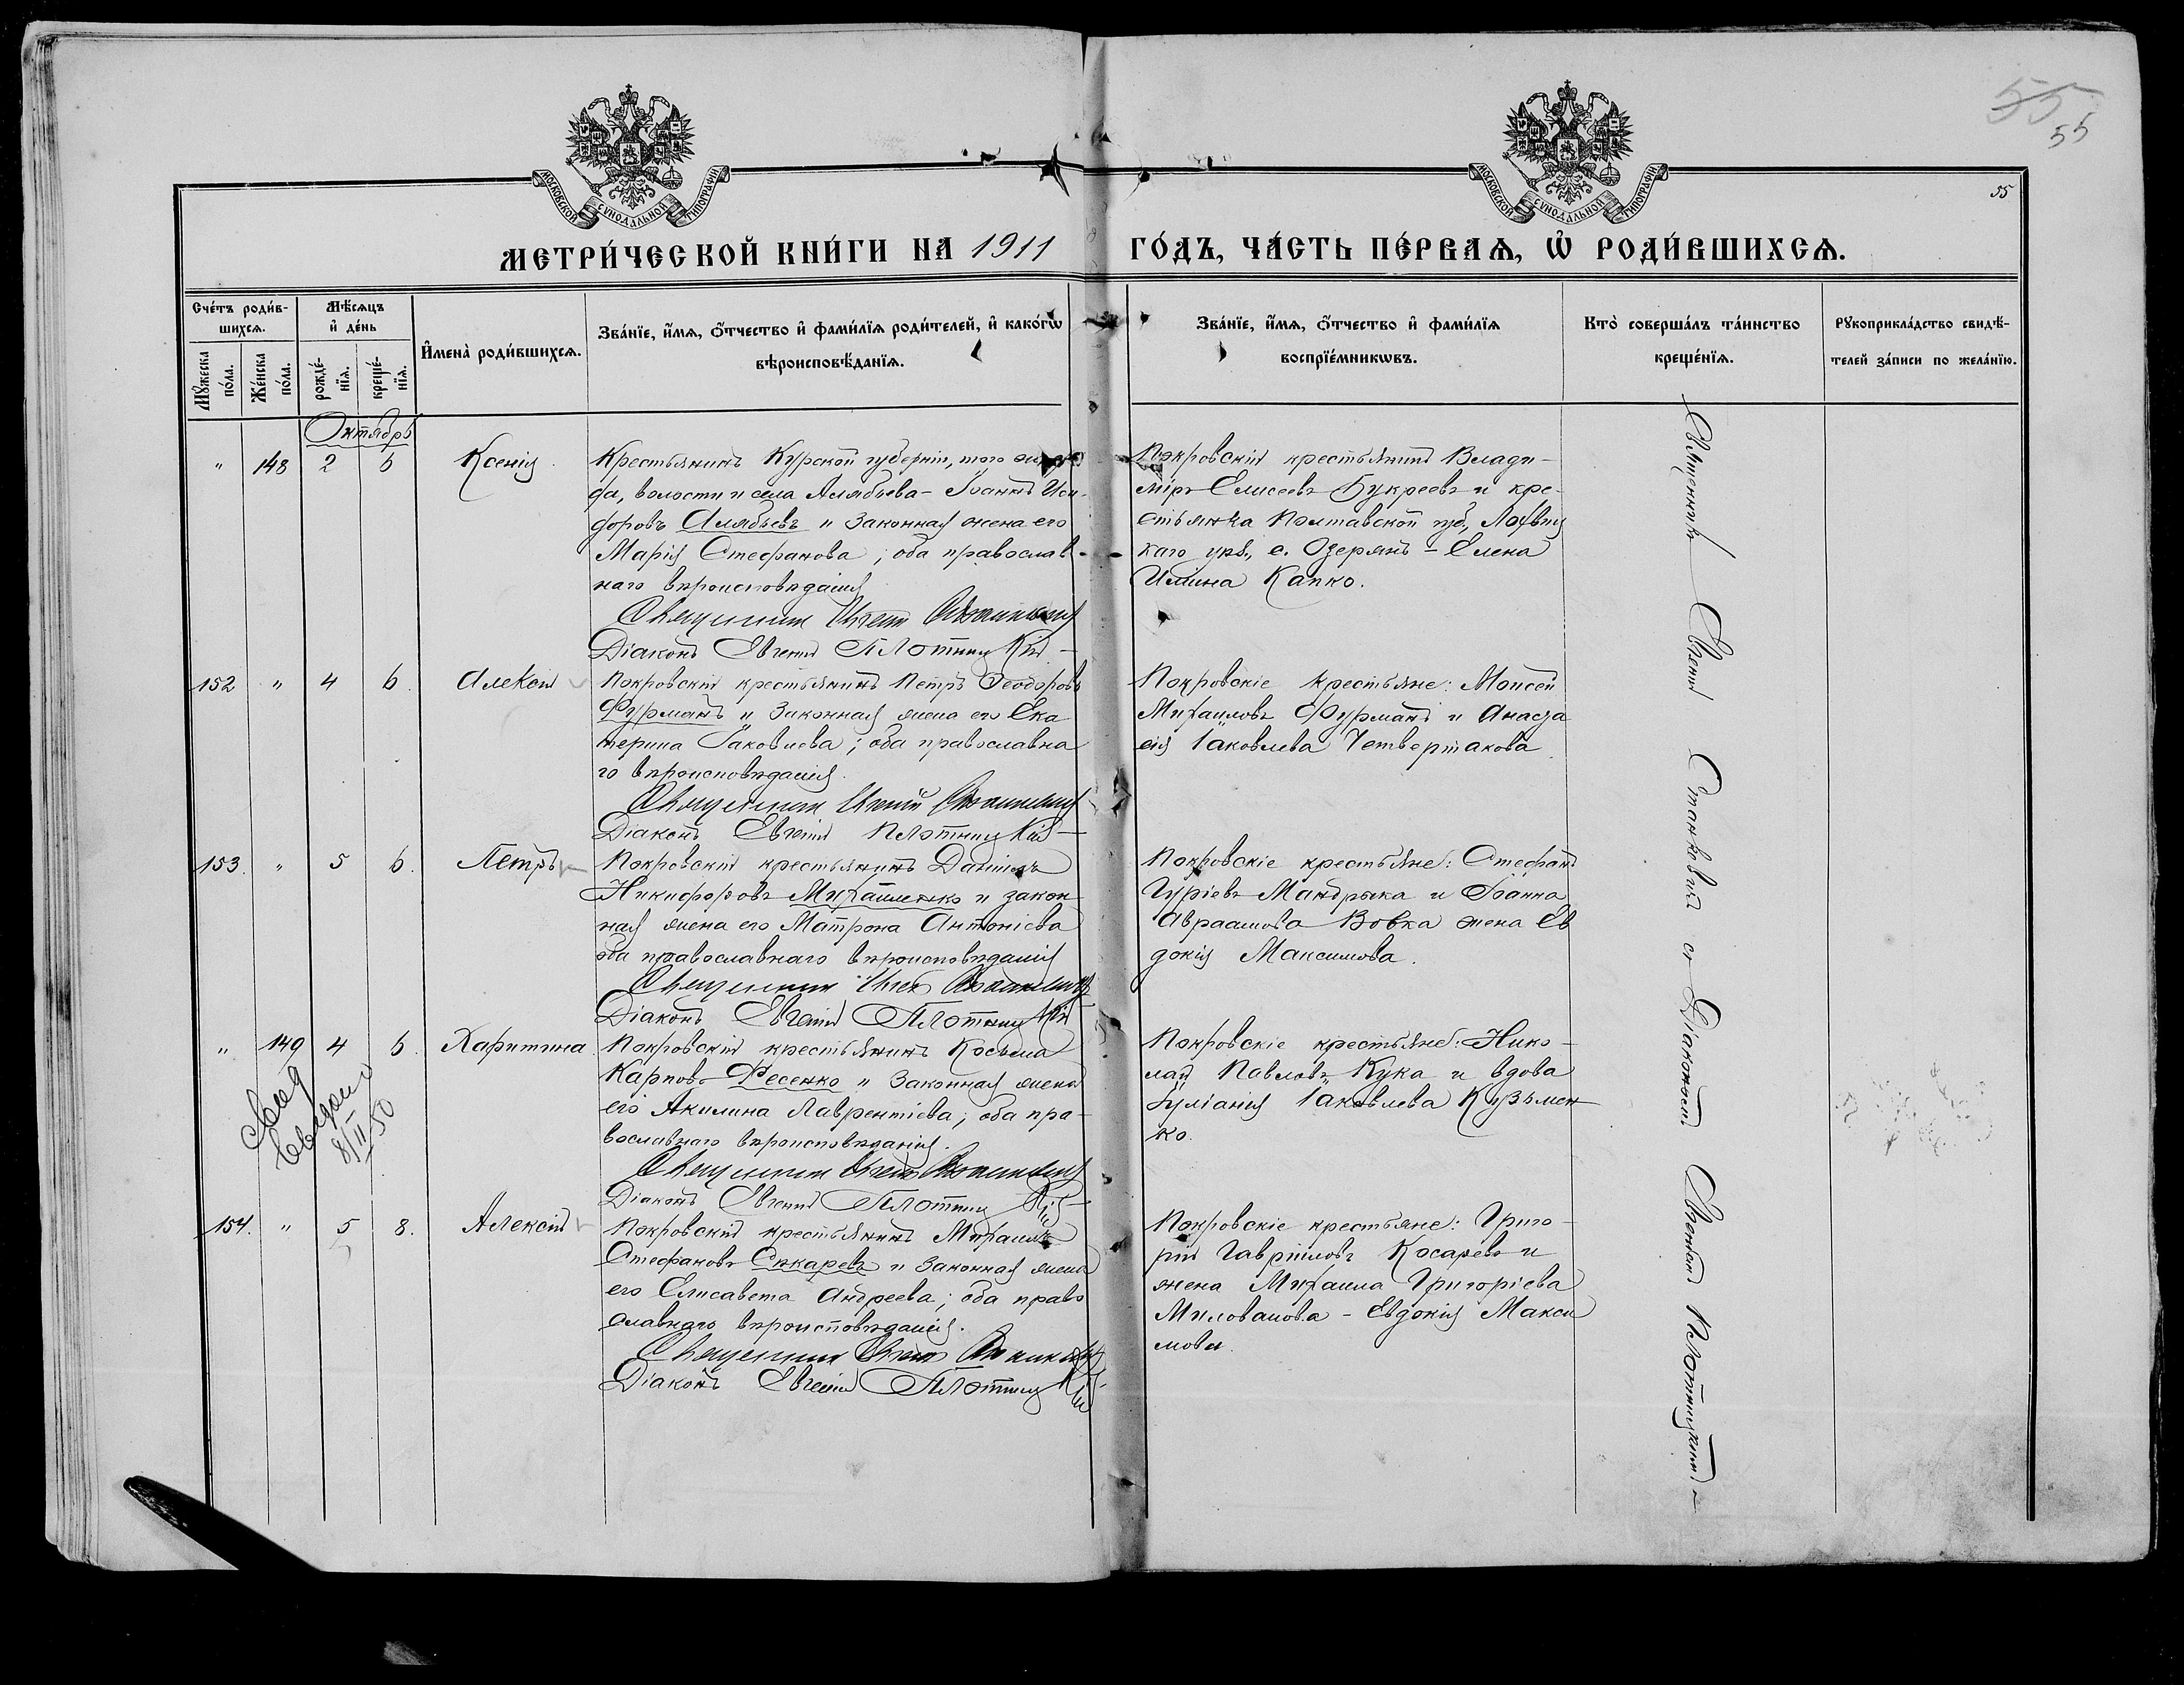 55
55
55
МОСКОВСКОЙ СѴНОДАЛЬНОЙ ТИПОГРАФІИ
МОСКОВСКОЙ СѴНОДАЛЬНОЙ ТИПОГРАФІИ
МЕТРИ́ЧЕСКОЙ КНИ́ГИ НА 1911 ГО́ДЪ, ЧА́СТЬ ПЕ́РВАѦ, Ѽ РОДИ́ВШИХСѦ.
Сче́тъ роди́в-
шихсѧ.
Мꙋ́жеска по́ла.
Же́нска по́ла.
Мѣ́сѧцъ
и҆ де́нь
рожде́-
нїѧ.
креще́-
нїѧ.
И҆мена̀ роди́вшихсѧ.
Зва́нїе, и҆́мѧ, ѻ҆́тчество и҆ фами́лїѧ роди́телей, и҆ како́гѡ
вѣроисповѣ́данїѧ.
Зва́нїе, и҆́мѧ, ѻ҆́тчество и҆ фами́лїѧ
воспрїе́мникѡвъ.
Кто̀ соверша́лъ та́инство
креще́нїѧ.
Рꙋкоприкла́дство свидѣ́-
телей за́писи по жела́нїю.
Октябрь
" 148 2 6 Ксенія
Крестьянинъ Курской губерніи, того
да, волости и села Алябьева - Іоаннъ Иси-
доровъ Алябьевъ и законная жена его
Марія Стефанова; оба православ-
наго вѣроисповѣданія
Священникъ Евгеній
Діаконъ Евгеній Плотницкій
Покровскій крестьянинъ Влади-
міръ Елисеевъ Букреевъ и кре-
стьянка Полтавской губ., Лохвиц
каго уѣз., с. Озерянъ - Елена
Ильина Капко.
152 " 4 6. Алексій
Покровскій крестьянинъ Петръ Ѳеодоровъ
Фурманъ и законная жена его Ека
терина Іаковлева; оба православна
го вѣроисповѣданія.
Священникъ Евгеній
Діаконъ Евгеній Плотницкій
Покровскіе крестьяне: Моисей
Михаиловъ Фурманъ и Анаста
сія Іаковлева Четвертакова
153. " 5 6. Петръ
Покровскій крестьянинъ Даніилъ
Никифоровъ Михайленко и закон
ная жена его Матрона Антоніева
оба православнаго вѣроисповѣданія
Священникъ Евгеній
Діаконъ Евгеній Плотницкій
Покровскіе крестьяне: Стефанъ
Гуріевъ Мандрыка и Іоанна
Авраамова Вовка жена Ев
докія Максимова.
" 149 4 6. Харитина
Покровскій крестьянинъ Косьма
Карповъ Фесенко и законная жена
его Акилина Лаврентіева; оба пра-
вославнаго вѣроисповѣданія.
Священникъ Евгеній
Діаконъ Евгеній Плотницкій
Покровскіе крестьяне: Нико-
лай Павловъ Кука и вдова
Іуліанія Іаковлева Кузьмен
ко.
8/II 50
154. " 5 8. Алексій
Покровскій крестьянинъ Михаилъ
Стефановъ Сѣкаревъ и законная жена
его Елисавета Андреева; оба право
славнаго вѣроисповѣданія.
Священникъ Евгеній
Діаконъ Евгеній Плотницкій
Покровскіе крестьяне: Григо-
рій Гавріиловъ Косаревъ и
жена Михаила Григоріева
Милованова - Евдокія Макси
мова.
Священникъ Евгеній съ Діакономъ Евгеніемъ Плотницкимъ